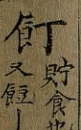 飣
貯食也
又餖丨